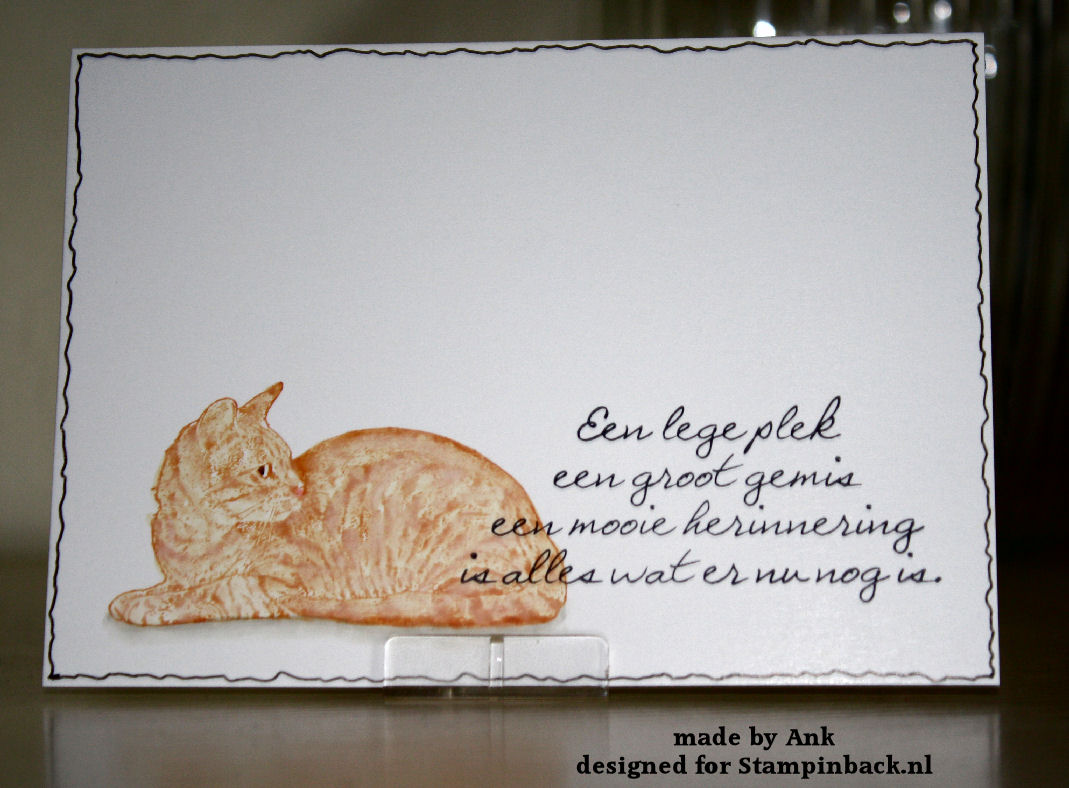 Een lege plek
een groot gemis
een mooie herinnering
is alles wat er nu nog is.
made by Ank
designed for Stampinback.nl